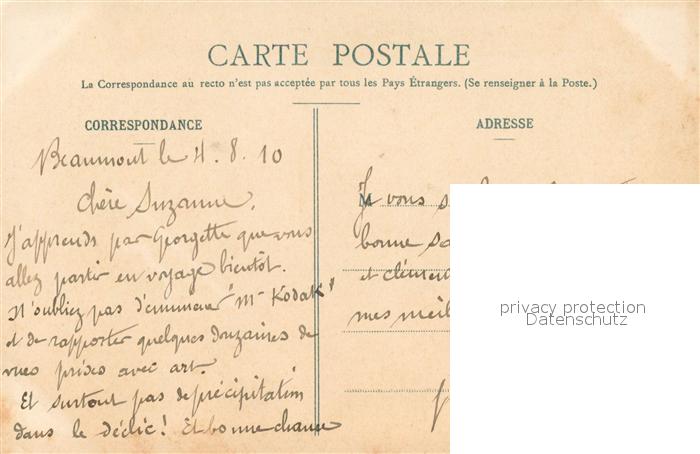 CARTE POSTALE
La Correspondance au recto n'est pas acceptée par tous les Pays Étrangers. (Se renseigner à la Poste.)
CORRESPONDANCE
ADRESSE
Beaumont le 4.8.10
Chère Suzanne,
J'apprends par Georgette que vous
allez partir en voyage bientôt.
N'oubliez pas d'emmener "Mr Kodak"
et de rapporter quelques douzaines de
vues prises avec art.
Et surtout pas de précipitation
dans le déclic! Et bonne chance
M
Je vous
bonne
et
mes
privacy protection
Datenschutz